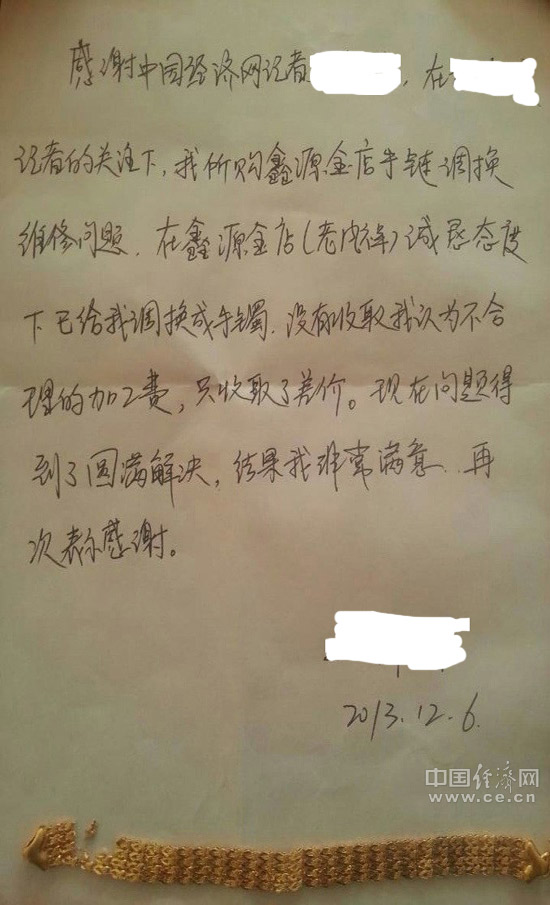 感谢中国经济网记者 , 在
记者的关注下,我所购鑫源金店手链调换
维修问题.在鑫源金店(老庙祥)诚恳态度
下已给我调换成手镯.没有收取我认为不合
理的加工费,只收取了差价。现在问题得
到了圆满解决,结果我非常满意.再
次表示感谢。
2013.12.6.
中国经济网
www.ce.cn